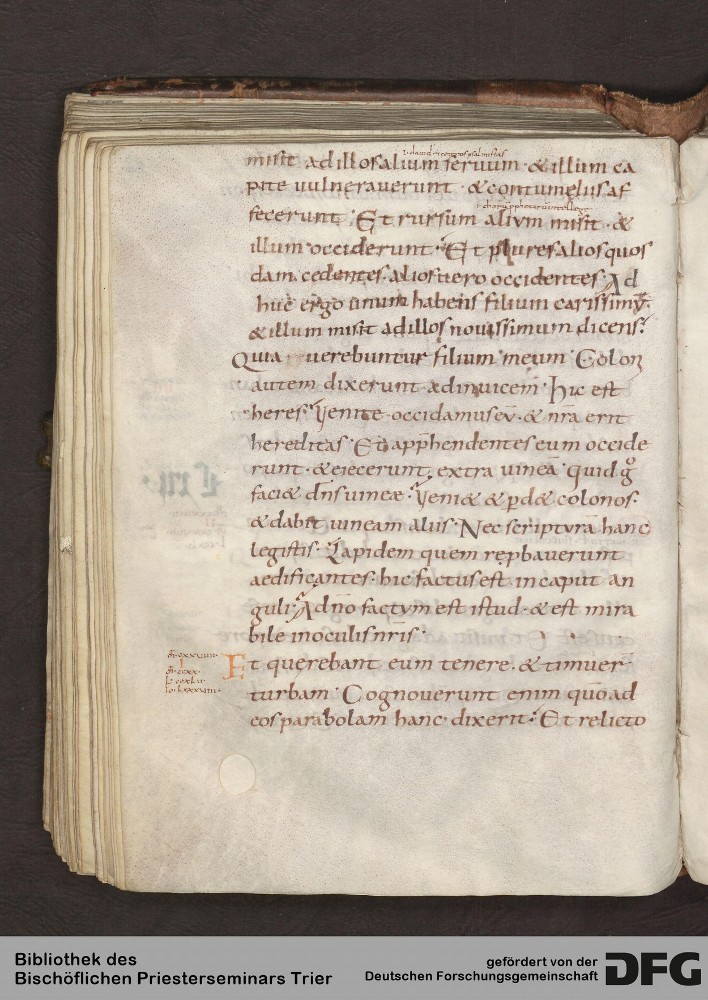 misit ad illos alium seruum · & illum ca
pite uulnerauerunt · & contumeliis af
fecerunt · Et rursum alium misit · &
illum occiderunt · Et plures alios quos
dam cedentes · alios uero occidentes · Ad
huc ergo unum habens filium carissimū·
& illum misit ad illos nouissimum dicens·
Quia uerebuntur filium meum · Colon
autem dixerunt ad inuicem · Hic est
heres · Uenite occidamus eū · & nr̄a erit
hereditas · Et app̄hendentes eum occide
runt · & eiecerunt extra uineā · quid gͦ
faci& dn̄s uineae · Ueni& & p̄d& colonos ·
& dabit uineam aliis · Nec scripturā hanc
legistis · Lapidem quem rep̄bauerunt
aedificantes · hic factus est in caput an
guli · A dn̄o factum est istud · & est mira
bile in oculis nr̄is ·
Et querebant eum tenere · & timuer̄
turbam · Cognouerunt enim quō ad
eos parabolam hanc dixerit · Et relicto
Bibliothek des
Bischöflichen Priesterseminars Trier
gefördert von der
Deutschen Forschungsgemeinschaft
DFG